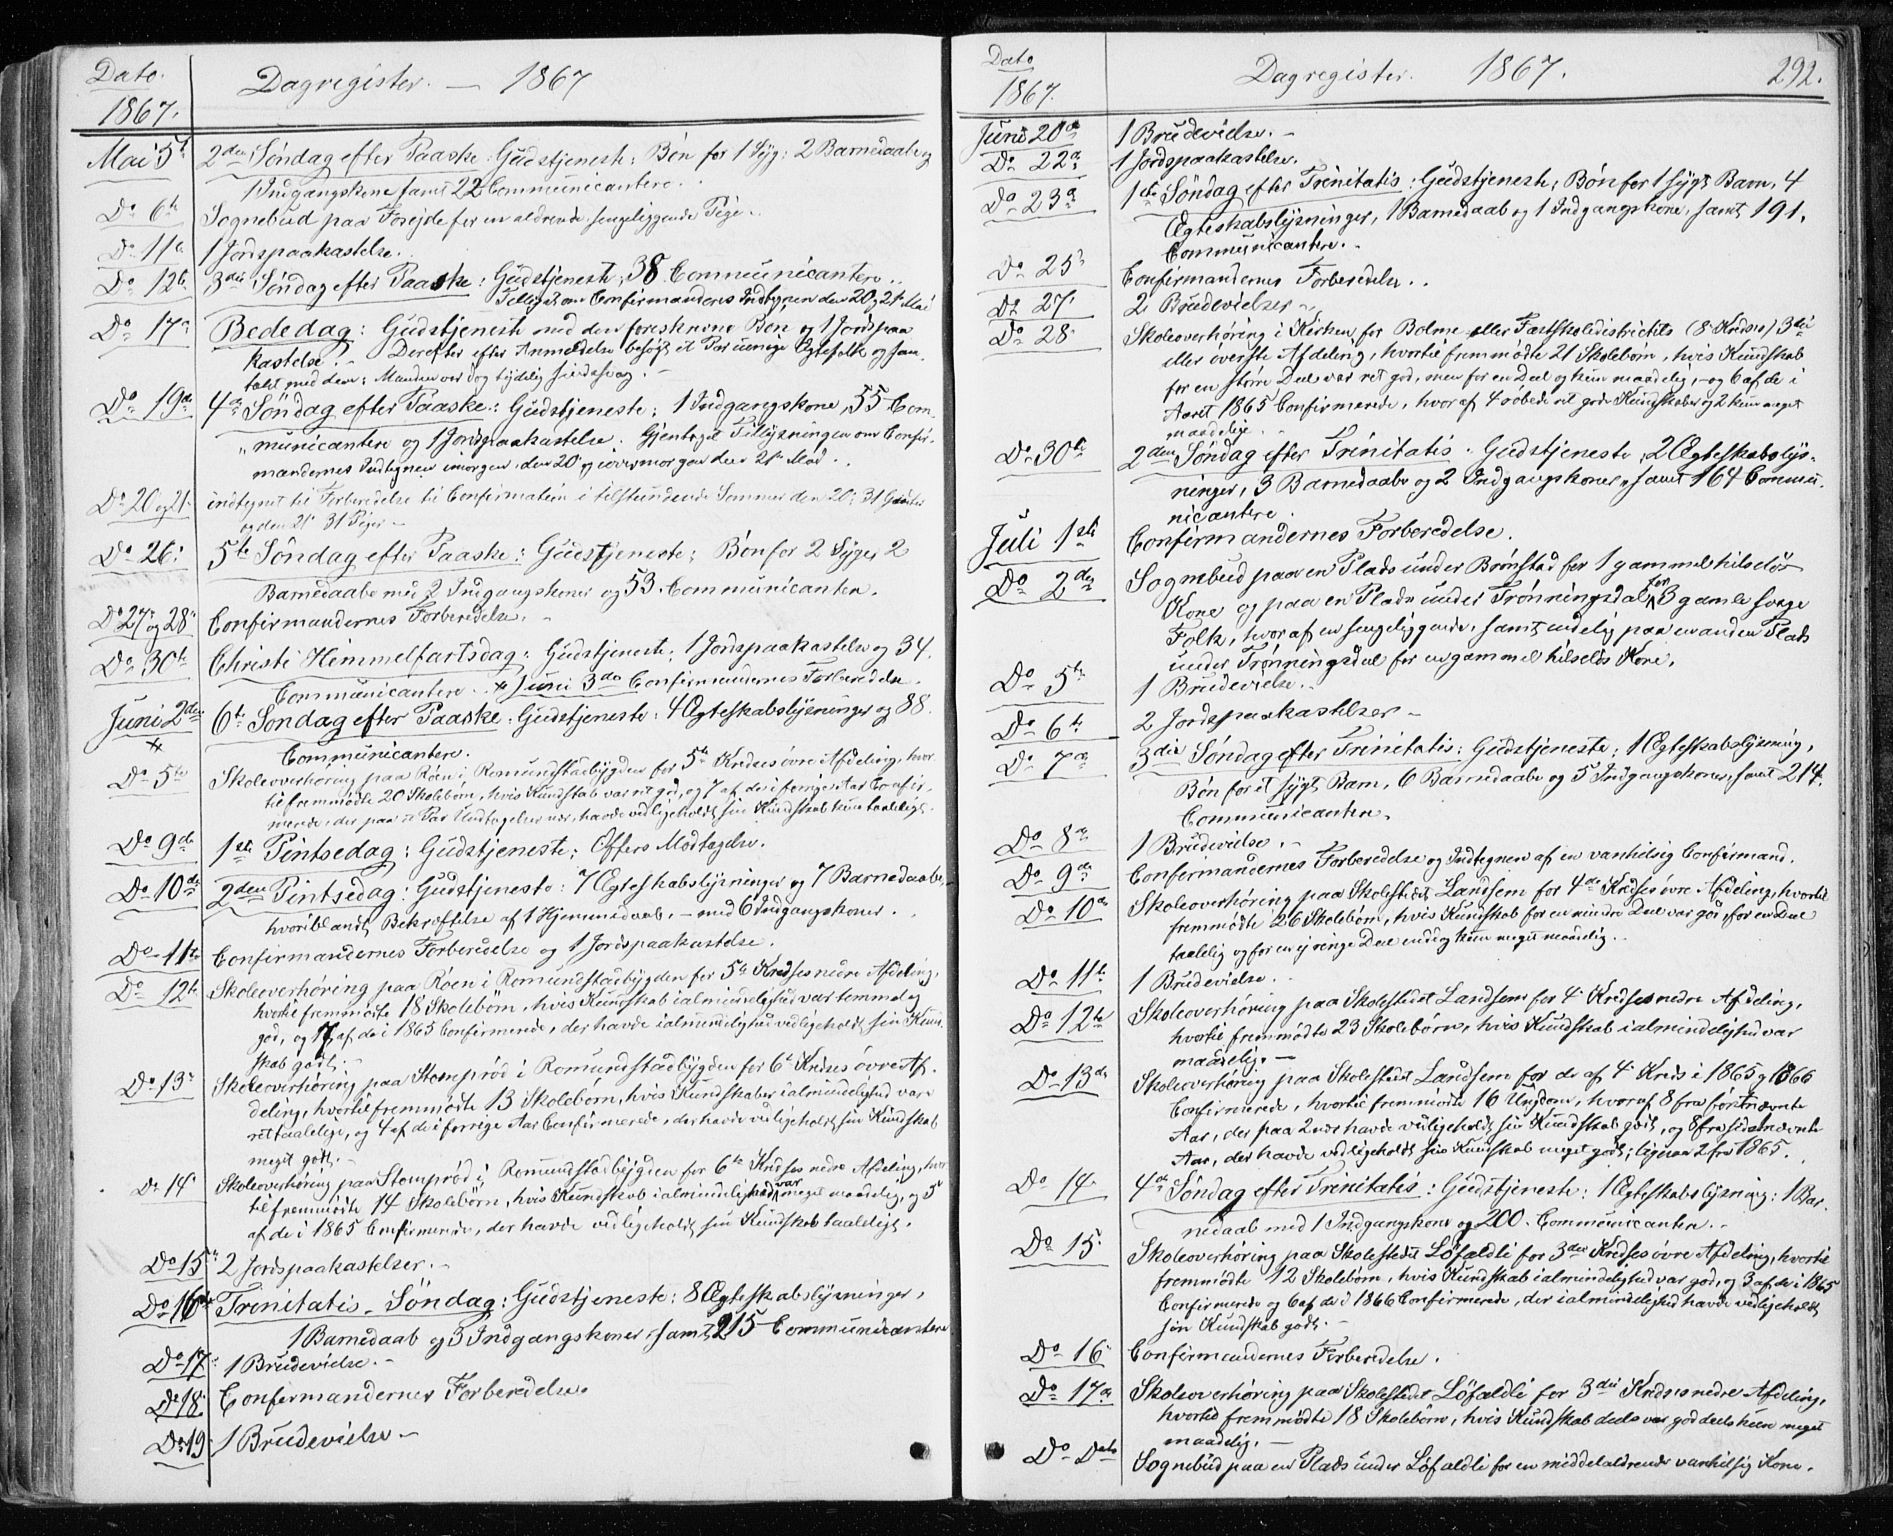 Dato.
1867.
Dagregister. — 1867
Mai 5te 2den Søndag efter Paaske: Gudstjeneste; Bøn for 1 Syg; 2 Barnedaab og
1 Indgangskone samt 22 Communicantere.
Do 6te Sognebud paa Forejde for en aldrende sengeliggende Pige.
Do 11te 1 Jordspaakastelse.
Do 12te 3die Søndag efter Paaske: Gudstjeneste; 38 Communicantere.
Tillyst om Confirmanders Indtegnen den 20 og 21 Mai
Do 17de Bededag: Gudstjeneste med den foreskrevne Bøn og 1 Jordspaa
kastelse. - Derefter efter Anmeldelse besøgt et Par uenige Ægtefolk og sam
talt med dem; Manden var dog tydelig sindssvag. -
Do 19de 4de Søndag efter Paaske: Gudstjeneste; 1 Indgangskone, 55 Com-
municantere og 1 Jordspaakastelse. Gjentaget Tillysningen om Confir-
mandernes Indtegnen imorgen den 20 og iovermorgen den 21 Mai.
Do 20 og 21. indtegnet til Forberedelse til Confirmation i tilstundende Sommer den 20: 31 Gutter
og den 21: 31 Piger -
Do 26: 5te Søndag efter Paaske: Gudstjeneste; Bøn for 2 Syge; 2
Barnedaabe med 2 Indgangskoner og 53 Communicantere.
Do 27 og 28 Confirmandernes Forberedelse. -
Do 30te Christi Himmelfartsdag: Gudstjeneste; 1 Jordspaakastelse og 34
Communicantere. x Juni 3die Confirmandernes Forberedelse.
Juni 2den 6te Søndag efter Paaske: Gudstjeneste: 4 Ægteskabslysninger og 88
x
Communicantere.
Do 5te Skoleoverhøring paa Röen i Romundstadbygden for 5te Kredses övre Afdeling, hvor-
til fremmødte 20 Skolebørn, hvis Kundskab var ret god, og 7 af de i forrige Aar Confir-
merede, der paa et Par Undtagelser nær, havde vedligeholdt sin Kundskab kun taaleligt.
Do 9de 1ste Pintsedag: Gudstjeneste; Offers Modtagelse.
Do 10de 2den Pintsedag: Gudstjeneste: 7 Ægteskabslysninger og 7 Barnedaabe,
hvoriblandt Bekræftelse af 1 Hjemmedaab, - med 6 Indgangskoner.
Do 11te Confirmandernes Forberedelse og 1 Jordspaakastelse.
Do 12te Skoleoverhøring paa Röen i Romundstadbygden for 5te Kredses nedre Afdeling,
hvortil fremmødte 18 Skolebørn, hvis Kundskab i almindelighed var temmelig
god, og 17 af de i 1865 Confirmerede, der havde i almindelighed vedligeholdt sin Kund-
skab godt. -
Do 13de Skoleoverhøring paa Stomprød i Romundstadbygden for 6te Kredses övre Af-
deling, hvortil fremmødte 13 Skolebørn, hvis Kundskaber i almindelighed vare
ret taalelige, og 4 af de i forrige Aar Confirmerede, der havde vedligeholdt sin Kundskab
meget godt. -
Do 14 Skoleoverhøring paa Stomprød i Romundstadbygden for 6te Kredses nedre Afdeling, hvor-
til fremmødte 14 Skolebørn, hvis Kundskab i almindelighed var meget maadelig, og 5
af de i 1865 Confirmerede, der havde vedligeholdt sin Kundskab taaleligt.
Do 15de 2 Jordspaakastelser. -
Do 16de Trinitatis-Søndag: Gudstjeneste: 8 Ægteskabslysninger,
1 Barnedaab og 3 Indgangskoner, samt 215 Communicantere
Do 17 1 Brudevielse. -
Do 18. Confirmandernes Forberedelse.
Do 19 1 Brudevielse -
Dato
1867.
Dagregister. 1867.
292.
Juni 20de 1 Brudevielse. -
Do 22de 1 Jordspaakastelse.
Do 23de 1ste Søndag efter Trinitatis: Gudstjeneste; Bøn for 1 sygt Barn, 4
Ægteskabslysninger, 1 Barnedaab og 1 Indgangskone, samt 191.
Communicantere.
Do 25 Confirmandernes Forberedelse.
Do 27. 2 Brudevielser -
Do 28 Skoleoverhøring i Kirken for Bolme eller Fastskoledistrikts (8 Kredses) 3die
eller överste Afdeling, hvortil fremmødte 21 Skolebørn, hvis Kundskab
for en större Deel var ret god, men for en Deel og kun maadelig, - og 6 af de i
Aaret 1865 Confirmerede, hvoraf 4 röbede ret gode Kundskaber og 2 kun meget
maadelige.
Do 30te 2den Søndag efter Trinitatis: Gudstjeneste, 2 Ægteskabslys-
ninger, 3 Barnedaabe og 2 Indgangskoner, samt 164 Commu-
nicantere.
Juli 1ste Confirmandernes Forberedelse.
Do 2den Sognebud paa en Plads under Børnstad for 1 gammel hilselös
Kone og paa en Plads under Trønningsdal for 3 gamle svage
Folk, hvoraf en sengeliggende, samt endelig paa en anden Plads
under Trønningsdal for en gammel hilselös Kone.
Do 5te 1 Brudevielse.
Do 6te 2 Jordspaakastelser -
Do 7de 3die Søndag efter Trinitatis: Gudstjeneste; 1 Ægteskabslysning,
Bøn for et sygt Barn, 6 Barnedaabe og 5 Indgangskoner, samt 214
Communicantere.
Do 8de 1 Brudevielse. -
Do 9de Confirmandernes Forberedelse og Indtegnen af en vanhilsig Confirmand.
Do 10de Skoleoverhøring paa Skolestedet Landsem for 4de Kredses övre Afdeling, hvortil
fremmødte 26 Skolebørn, hvis Kundskab for en mindre Deel var god, for en Deel
taalelig og for en ej ringe Deel endog kun meget maadelig.
Do 11te 1 Brudevielse.
Do 12te Skoleoverhøring paa Skolestedet Landsem for 4 Kredses nedre Afdeling,
hvortil fremmødte 23 Skolebørn, hvis Kundskab i almindelighed var
maadelig. -
Do 13de Skoleoverhøring paa Skolestedet Landsem for de af 4 Kreds i 1865 og 1866
Confirmerede, hvortil fremmødte 16 Ungdom, hvoraf 8 fra førstnævnte
Aar, der paa 2 nær havde vedligeholdt sin Kundskab godt, og 8 fra sidstnævnte
Aar, der havde vedligeholdt sin Kundskab meget godt; ligesaa 2 fra 1865.
Do 14 4de Søndag efter Trinitatis: Gudstjeneste: 1 Ægteskabslysning: 1 Bar-
nedaab med 1 Indgangskone og 200 Communicantere.
Do 15 Skoleoverhøring paa Skolestedet Löfaldli for 3die Kredses övre Afdeling, hvortil
fremmødte 12 Skolebørn, hvis Kundskab i almindelighed var god, og 3 af de i 1865
Confirmerede og 6 af de i 1866 Confirmerede, der i almindelighed havde vedligeholdt
sin Kundskab godt. -
Do 16 Confirmandernes Forberedelse.
Do 17de Skoleoverhøring paa Skolestedet Löfaldli for 3die Kredses nedre Afdeling,
hvortil fremmødte 18 Skolebørn, hvis Kundskab deels var god deels kun meget
maadelig. -
Do Dato Sognebud paa en Plads under Löfaldli for en middelaldrende vanhilsig Kone.